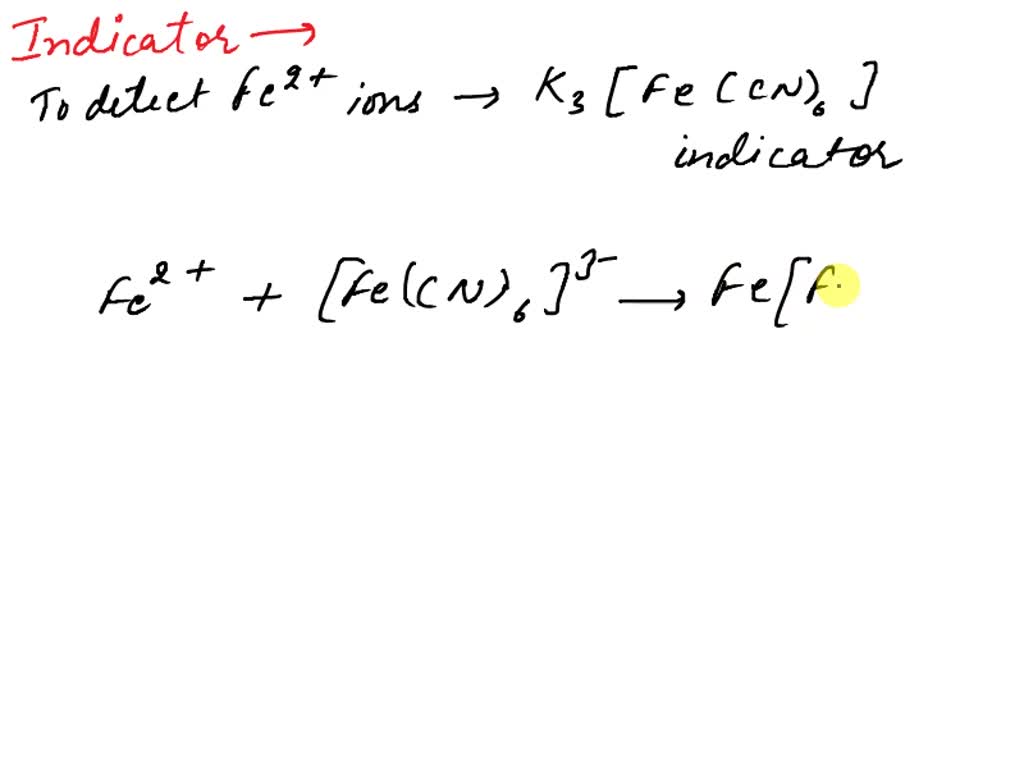 Indicator →
To detect Fe²⁺ ions → K₃[Fe(CN)₆]
indicator
Fe²⁺ + [Fe(CN)₆]³⁻ → Fe[F